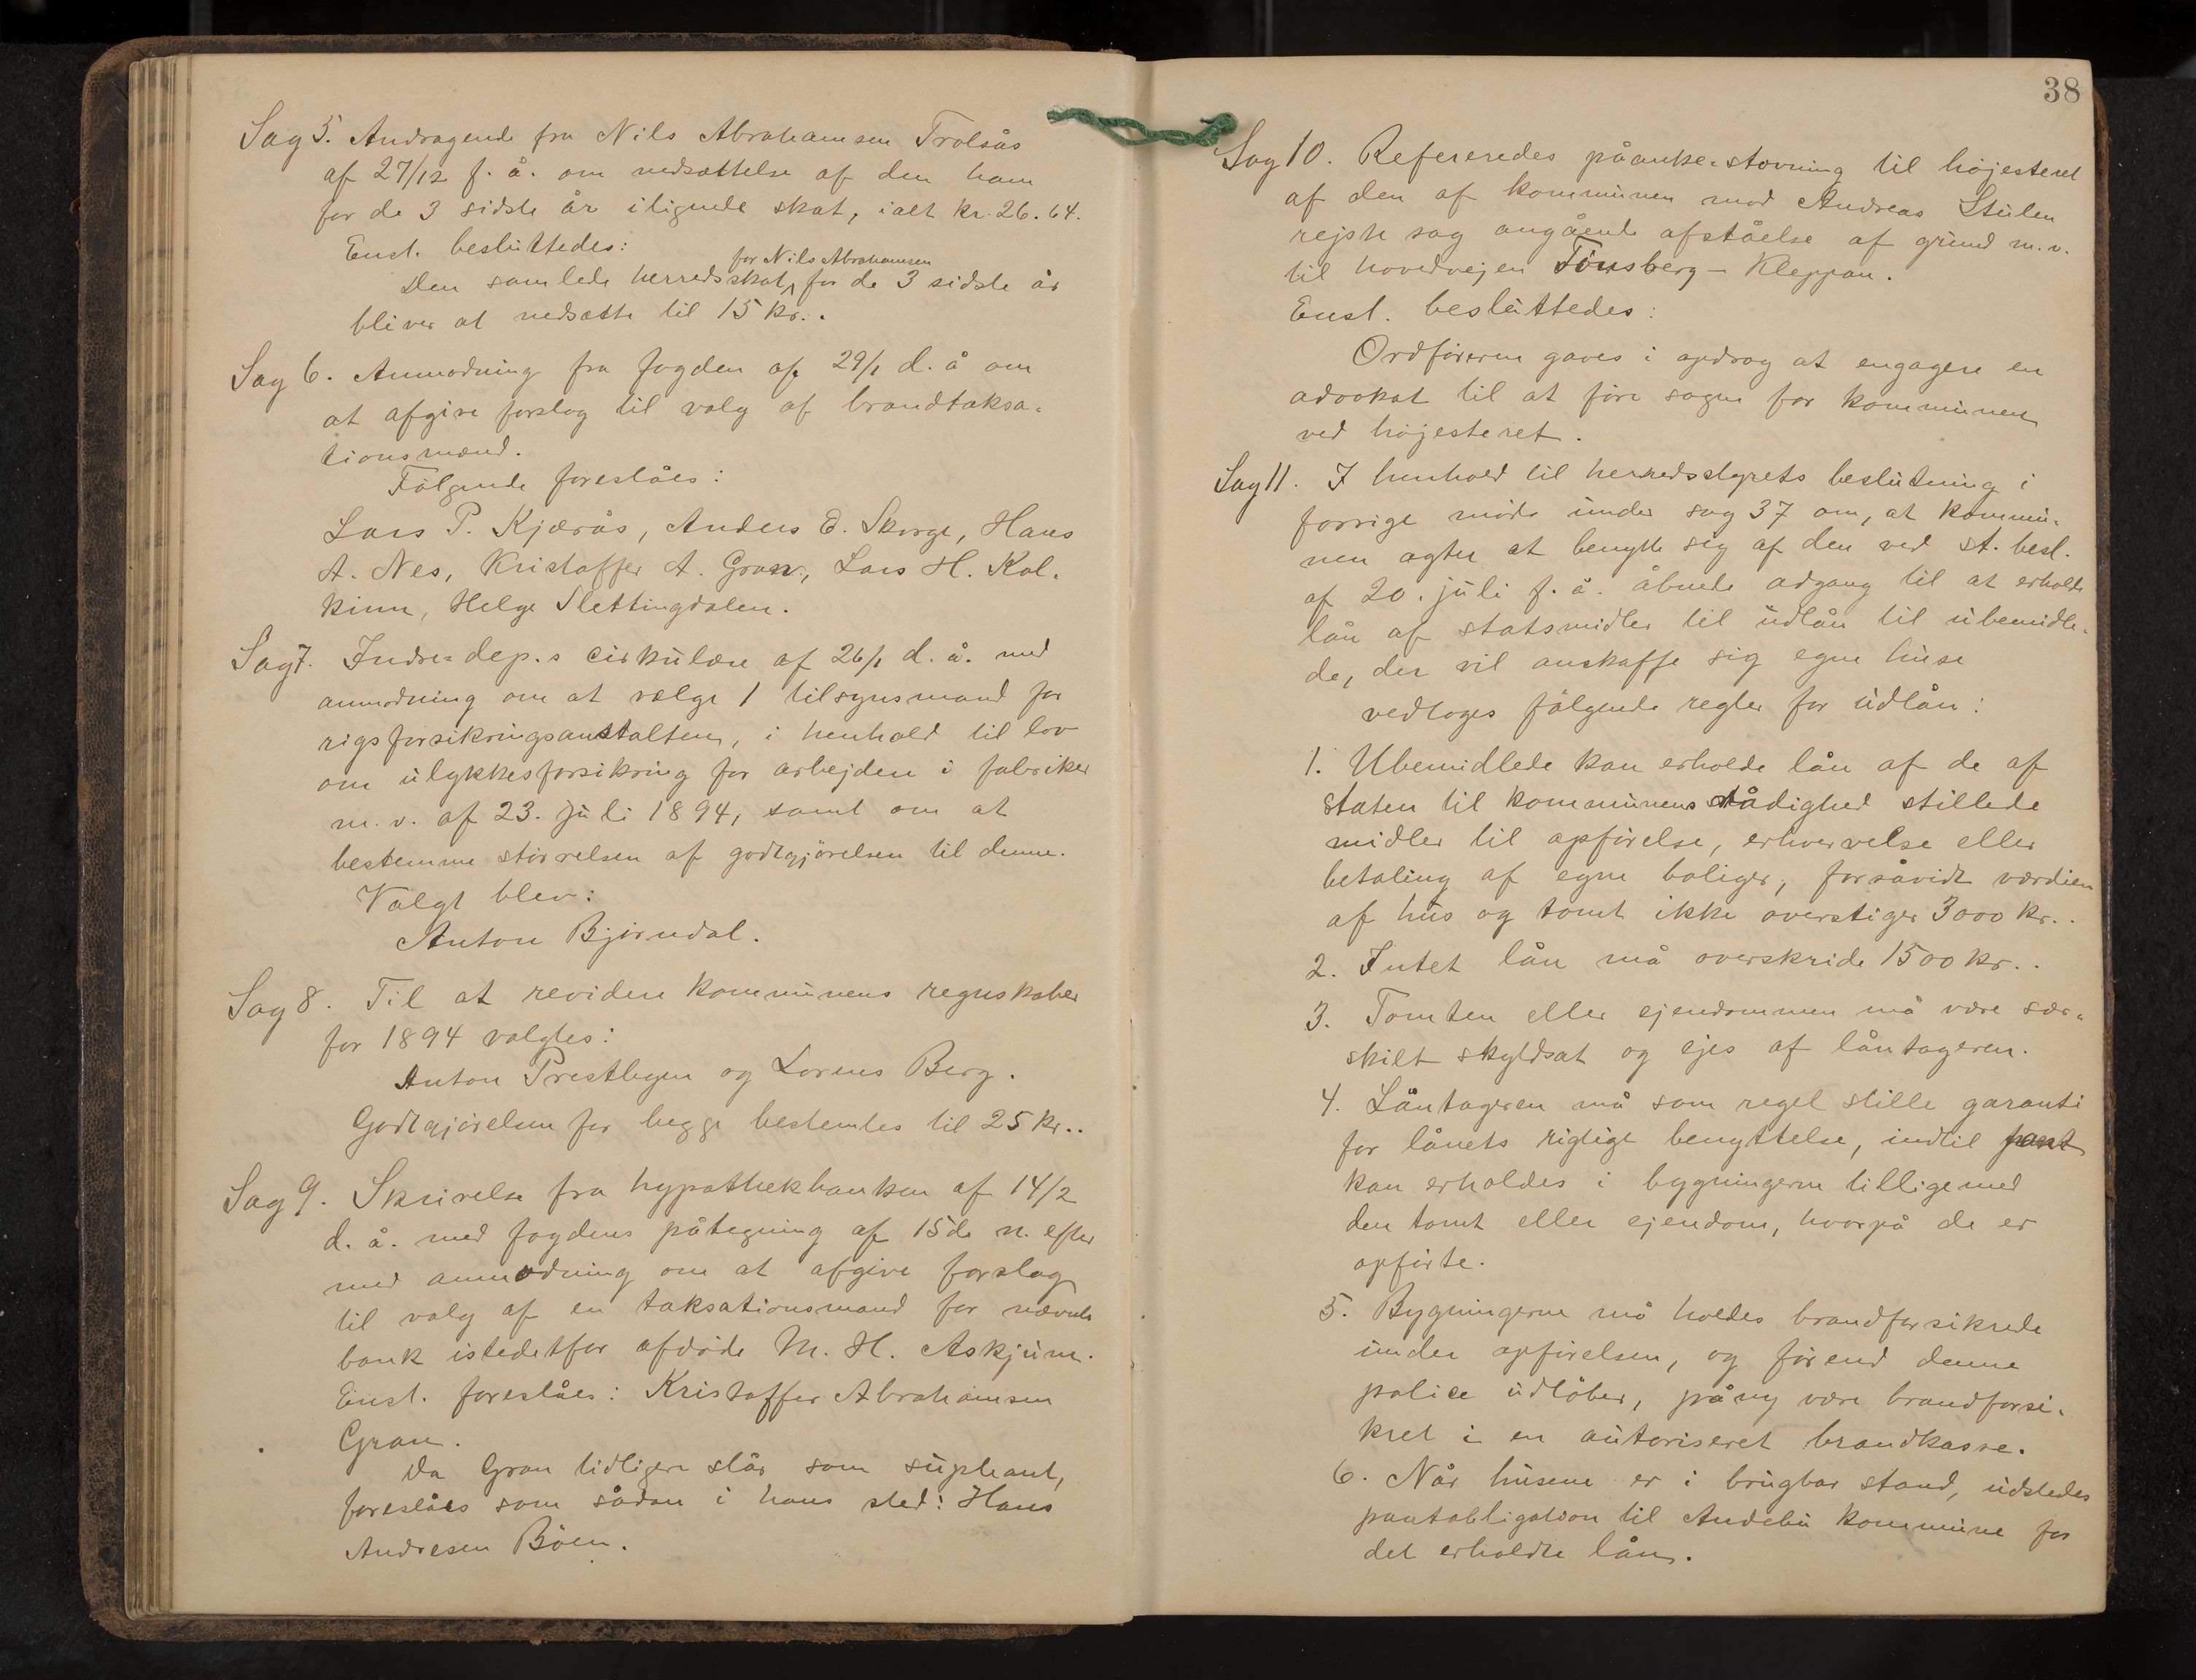 Sag 5. Andragende fra Nils Abrahamsen Trolsås
af 27/12 f. å. om nedsættelse af den ham
for de 3 sidste år ilignede skat, ialt kr. 26.64.
Enst. besluttedes:
for Nils Abrahamsen
Den samlede herredsskat, for de 3 sidste år
bliver at nedsætte til 15 kr..
Sag 6. Anmodning fra fogden af 29/1 d. å om
at afgive forslag til valg af brandtaksa-
tionsmænd.
Følgende foreslåes:
Lars P. Kjærås, Anders E. Skorge, Hans
A. Nes, Kristoffer A. Gran, Lars H. Kol-
kinn, Helge Slettingdalen.
Sag 7. Indre-dep.s cirkulære af 26/1 d. å. med
anmodning om at vælge 1 tilsynsmand for
rigsforsikringsanstalten, i henhold til lov
om ulykkesforsikring for arbejdere i fabriker
m. v. af 23. juli 1894, samt om at
bestemme størrelsen af godtgjørelsen til denne.
Valgt blev:
Anton Bjørndal.
Sag 8. Til at revidere kommunens regnskaber
for 1894 valgtes:
Anton Prestbyen og Lorens Berg.
Godtgjørelsen for begge bestemtes til 25 kr..
Sag 9. Skrivelse fra hypothekbanken af 14/2
d. å. med fogdens påtegning af 15de n. efter
med anmodning om at afgive forslag
til valg af en taksationsmand for nævnte
bank istedetfor afdøde M. H. Askjum.
Enst. foreslåes: Kristoffer Abrahamsen
Gran.
Da Gran tidligere står som supleant,
foreslåes som sådan i hans sted: Hans
Andresen Bøen.
38
Sag 10. Refereredes påanke-stævning til højesteret
af den af kommunen mod Andreas Stulen
rejste sag angående afståelse af grund m. v.
til hovedvejen Tønsberg - Kleppan.
Enst. besluttedes:
Ordføreren gaves i opdrag at engagere en
advokat til at føre sagen for kommunen
ved højesteret.
Sag 11. I henhold til herredsstyrets beslutning i
forrige møde under sag 37 om, at kommu-
nen agter at benytte sig af den ved st. besl.
af 20. juli f. å. åbnede adgang til at erholde
lån af statsmidler til udlån til ubemidle-
de, der vil anskaffe sig egne huse
vedtoges følgende regler for udlån:
1. Ubemidlede kan erholde lån af de af
staten til kommunens rådighed stillede
midler til opførelse, erhvervelse eller
betaling af egne boliger, forsåvidt værdien
af hus og tomt ikke overstiger 3000 kr..
2. Intet lån må overskride 1500 kr..
3. Tomten eller ejendommen må være sær-
skilt skyldsat og ejes af låntageren.
4. Låntageren må som regel stille garanti
for lånets rigtige benyttelse, indtil pant
kan erholdes i bygningerne tilligemed
den tomt eller ejendom, hvorpå de er
opførte.
5. Bygningerne må holdes brandforsikrede
under opførelsen, og førend denne
police udløber, påny være brandforsi-
kret i en autoriseret brandkasse.
6. Når husene er i brugbar stand, udstedes
pantobligation til Andebu kommune for
det erholdte lån.